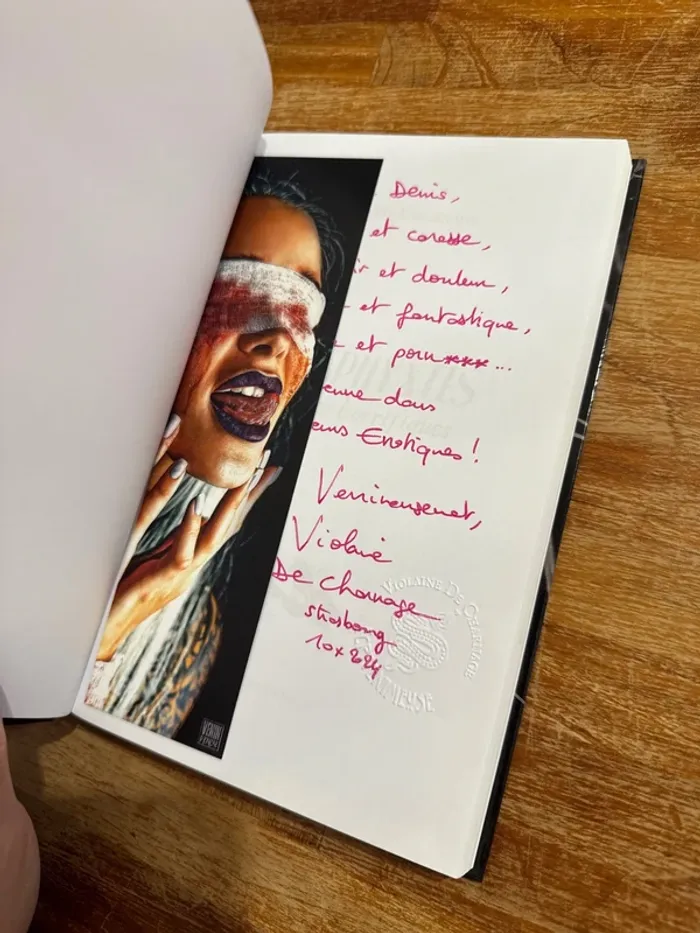 Denis,
et caresse,
ir et douleur,
et fantastique,
et porn***...
enne dans
eurs Erotiques !
Venimeusement,
Violaine
De Charnage
Strasbourg
VIOLAINE DE CHARNAGE